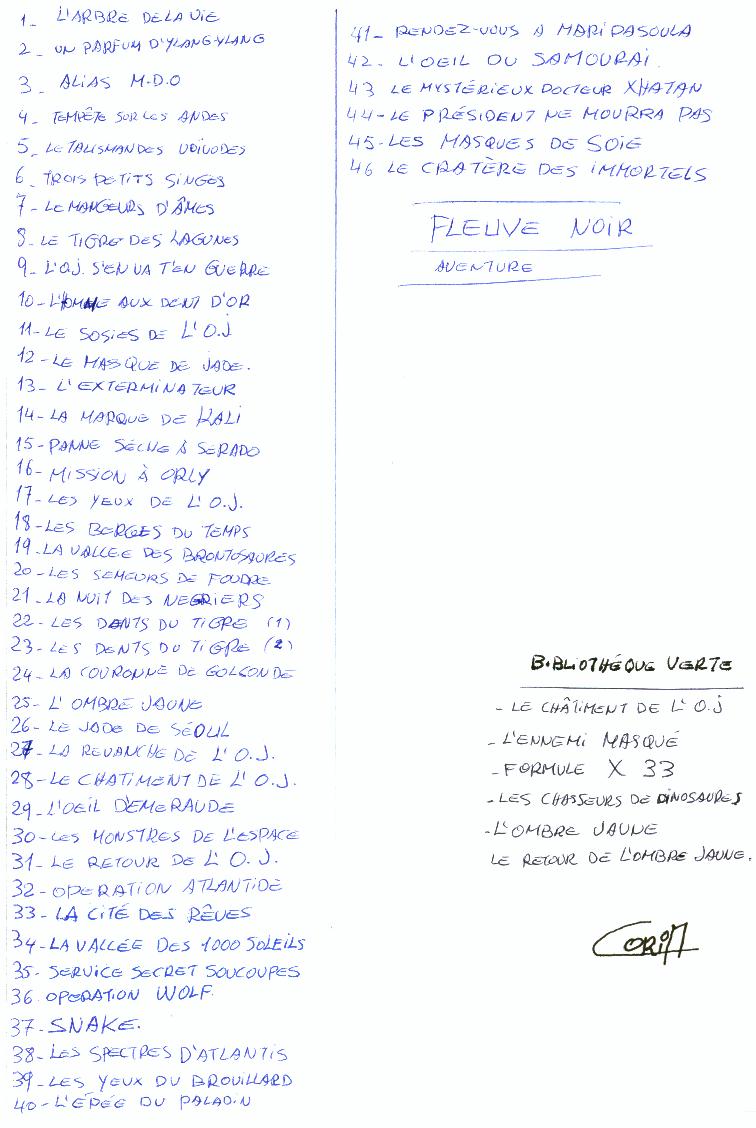 1_ L'ARBRE DE LA VIE
2_ UN PARFUM D'YLANG-YLANG
3_ ALIAS M.D.O
4_ TEMPÊTE SUR LES ANDES
5_ LE TALISMAN DES VOIVODES
6_ TROIS PETITS SINGES
7_ LE MANGEURS D'ÂMES
8_ LE TIGRE DES LAGUNES
9_ L'O.J. S'EN VA T'EN GUERRE
10_ L'HOMME AUX DENT D'OR
11_ LE SOSIES DE L'O.J
12_ LE MASQUE DE JADE.
13_ L'EXTERMINATEUR
14_ LA MARQUE DE KALI
15_ PANNE SÈCHE À SERADO
16_ MISSION À ORLY
17_ LES YEUX DE L'O.J.
18_ LES BERGES DU TEMPS
19_ LA VALLEE DES BRONTOSAURES
20_ LES SEMEURS DE FOUDRE
21_ LA NUIT DES NEGRIERS
22_ LES DENTS DU TIGRE (1)
23_ LES DENTS DU TIGRE (2)
24_ LA COURONNE DE GOLCONDE
25_ L'OMBRE JAUNE
26_ LE JADE DE SÉOUL
27_ LA REVANCHE DE L'O.J.
28_ LE CHATIMENT DE L'O.J.
29_ L'OEIL D'EMERAUDE
30_ LES MONSTRES DE L'ESPACE
31_ LE RETOUR DE L'O.J.
32_ OPERATION ATLANTIDE
33_ LA CITÉ DES RÊVES
34_ LA VALLÉE DES 1000 SOLEILS
35_ SERVICE SECRET SOUCOUPES
36 OPERATION WOLF.
37_ SNAKE.
38_ LES SPECTRES D'ATLANTIS
39_ LES YEUX DU BROUILLARD
40_ L'ÉPÉE DU PALADIN
41_ RENDEZ-VOUS A MARIPASOULA
42_ L'OEIL DU SAMOURAI.
43 LE MYSTÉRIEUX DOCTEUR XHATAN
44_ LE PRÉSIDENT NE MOURRA PAS
45_ LES MASQUES DE SOIE
46 LE CRATÈRE DES IMMORTELS
FLEUVE NOIR
AVENTURE
BIBLIOTHÉQUE VERTE
- LE CHÂTIMENT DE L'O.J
- L'ENNEMI MASQUÉ
- FORMULE X 33
- LES CHASSEURS DE DINOSAURES
- L'OMBRE JAUNE
LE RETOUR DE L'OMBRE JAUNE.